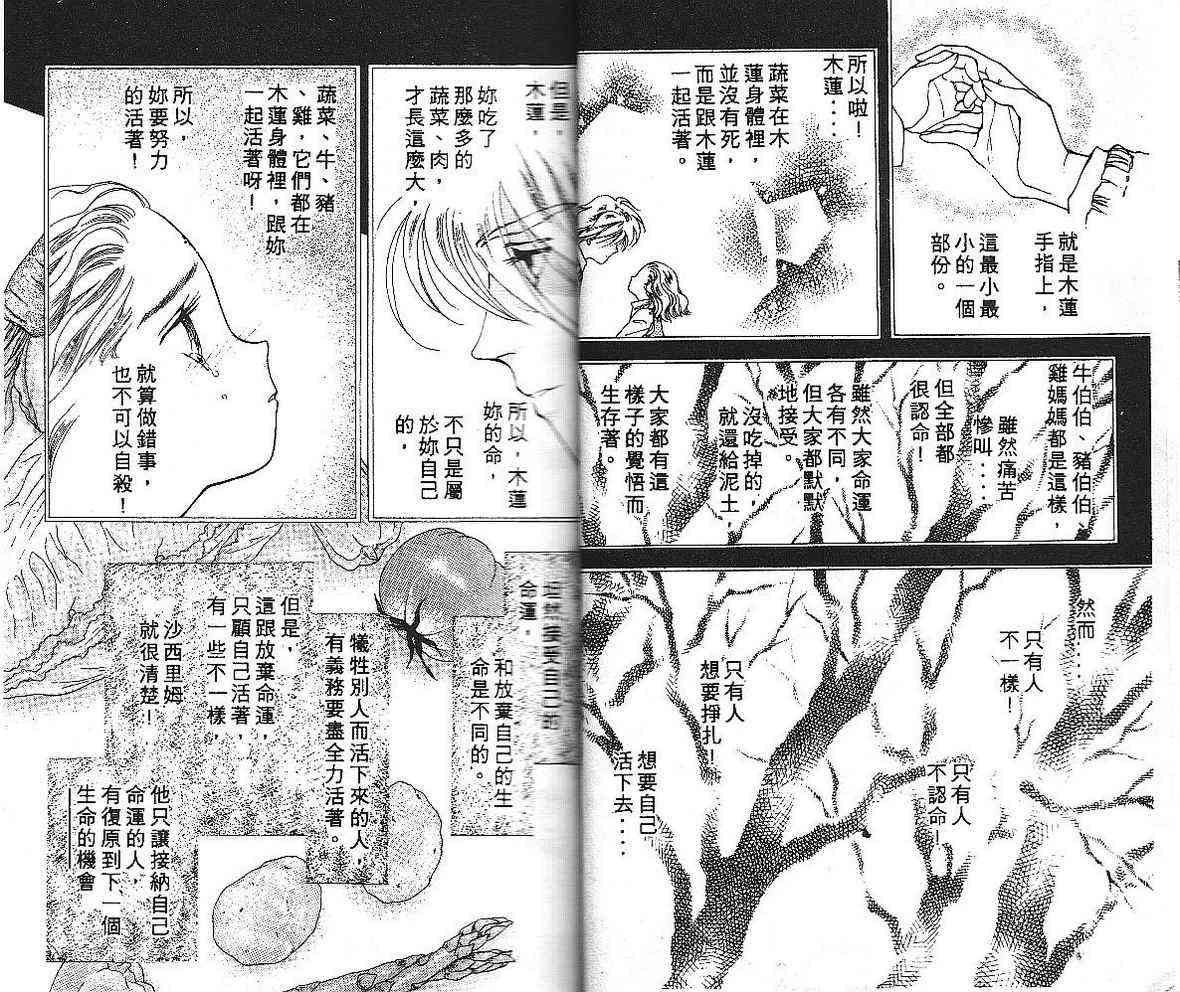 就是木蓮
手指上，
這最小最
小的一個
部份。
所以啦！
木蓮…
蔬菜在木
蓮身體裡，
並沒有死，
而是跟木蓮
一起活著。
牛伯伯、豬伯伯、
雞媽媽都是這樣，
雖然痛苦
慘叫…
但全部都
很認命！
雖然大家命運
各有不同，
但大家都默默
地接受。
沒吃掉的，
就還給泥土，
大家都有這
樣子的覺悟而
生存著。
然而…
只有人
不一樣！
只有人
不認命！
只有人
想要掙扎！
想要自己
活下去…
但是，
木蓮，
妳吃了
那麼多的
蔬菜、肉，
才長這麼大，
所以，木蓮
妳的命，
不只是屬
於妳自己
的，
蔬菜、牛、豬
、雞，它們都在
木蓮身體裡，跟妳
一起活著呀！
所以，
妳要努力
的活著！
就算做錯事，
也不可以自殺！
坦然接受自己的
命運，
和放棄自己的生
命是不同的。
犧牲別人而活下來的人，
有義務要盡全力活著。
但是，
這跟放棄命運，
只顧自己活著，
有一些不一樣，
沙西里姆
就很清楚！
他只讓接納自己
命運的人，
有復原到下一個
生命的機會